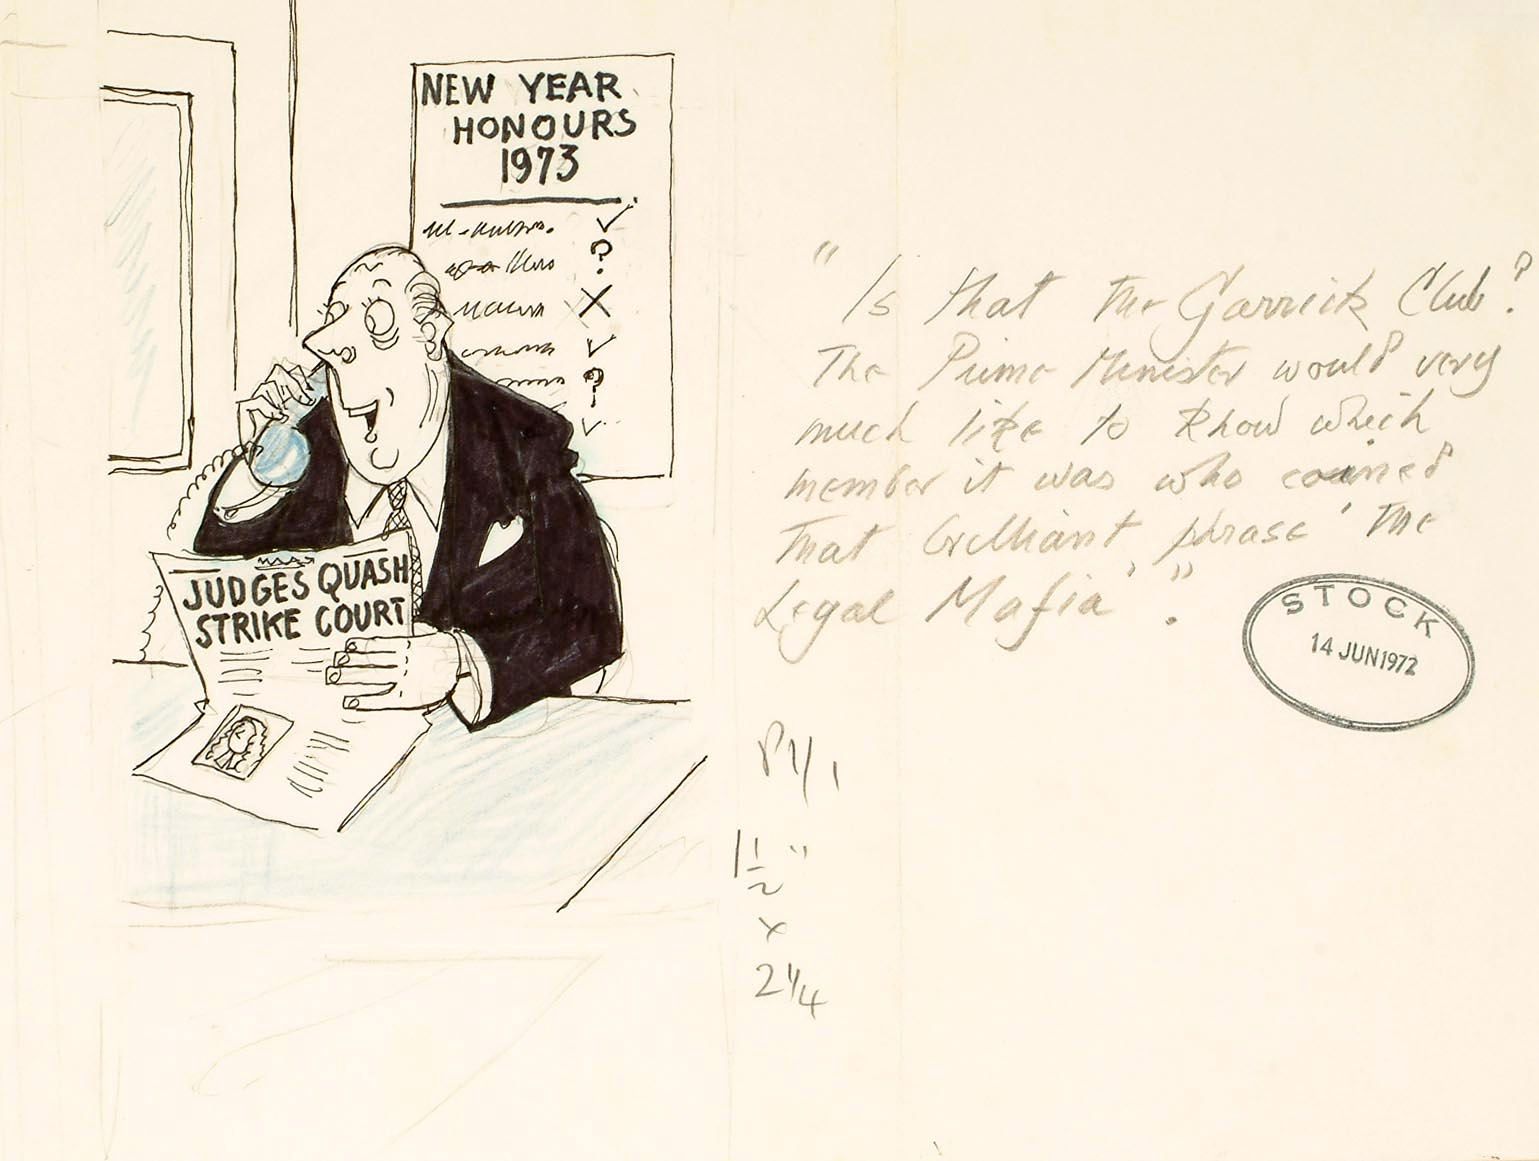 NEW YEAR
HONOURS
1973
JUDGES QUASH
STRIKE COURT
" Is that the Garrick Club?
The Prime Minister would very
much like to know which
member it was who coined
that brilliant phrase 'the
Legal Mafia'".
STOCK
14 JUN 1972
P1/1
1 1/2"
x
2 1/4